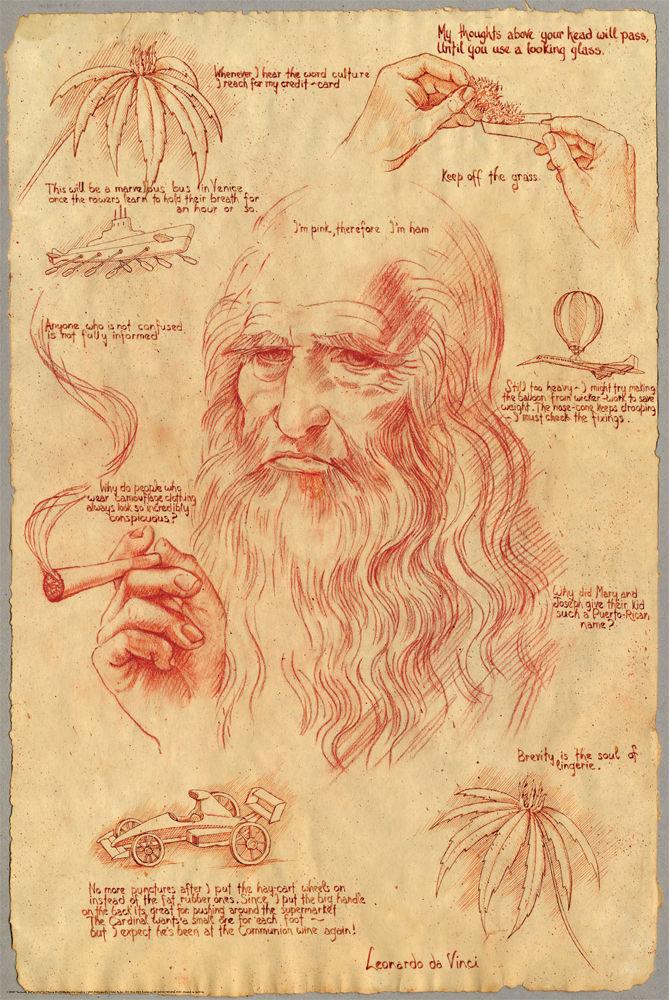 My thoughts above your head will pass,
Until you use a looking glass.
Whenever I hear the word culture
I reach for my credit-card
Keep off the grass.
This will be a marvellous bus in Venice
once the rowers learn to hold their breath for
an hour or so.
I'm pink, therefore I'm ham
Anyone who is not confused
is not fully informed
Still too heavy - I might try making
the balloon from wicker-work to save
weight. The nose-cone keeps drooping
- I must check the fixings.
Why do people who
wear camouflage clothing
always look so incredibly
conspicuous?
Why did Mary and
Joseph give their kid
such a Puerto-Rican
name?
Brevity is the soul of
lingerie.
No more punctures after I put the hay-cart wheels on
instead of the fat rubber ones. Since I put the big handle
on the back its great for pushing around the supermarket
The Cardinal wants a small one for each foot -
but I expect he's been at the Communion wine again!
Leonardo da Vinci